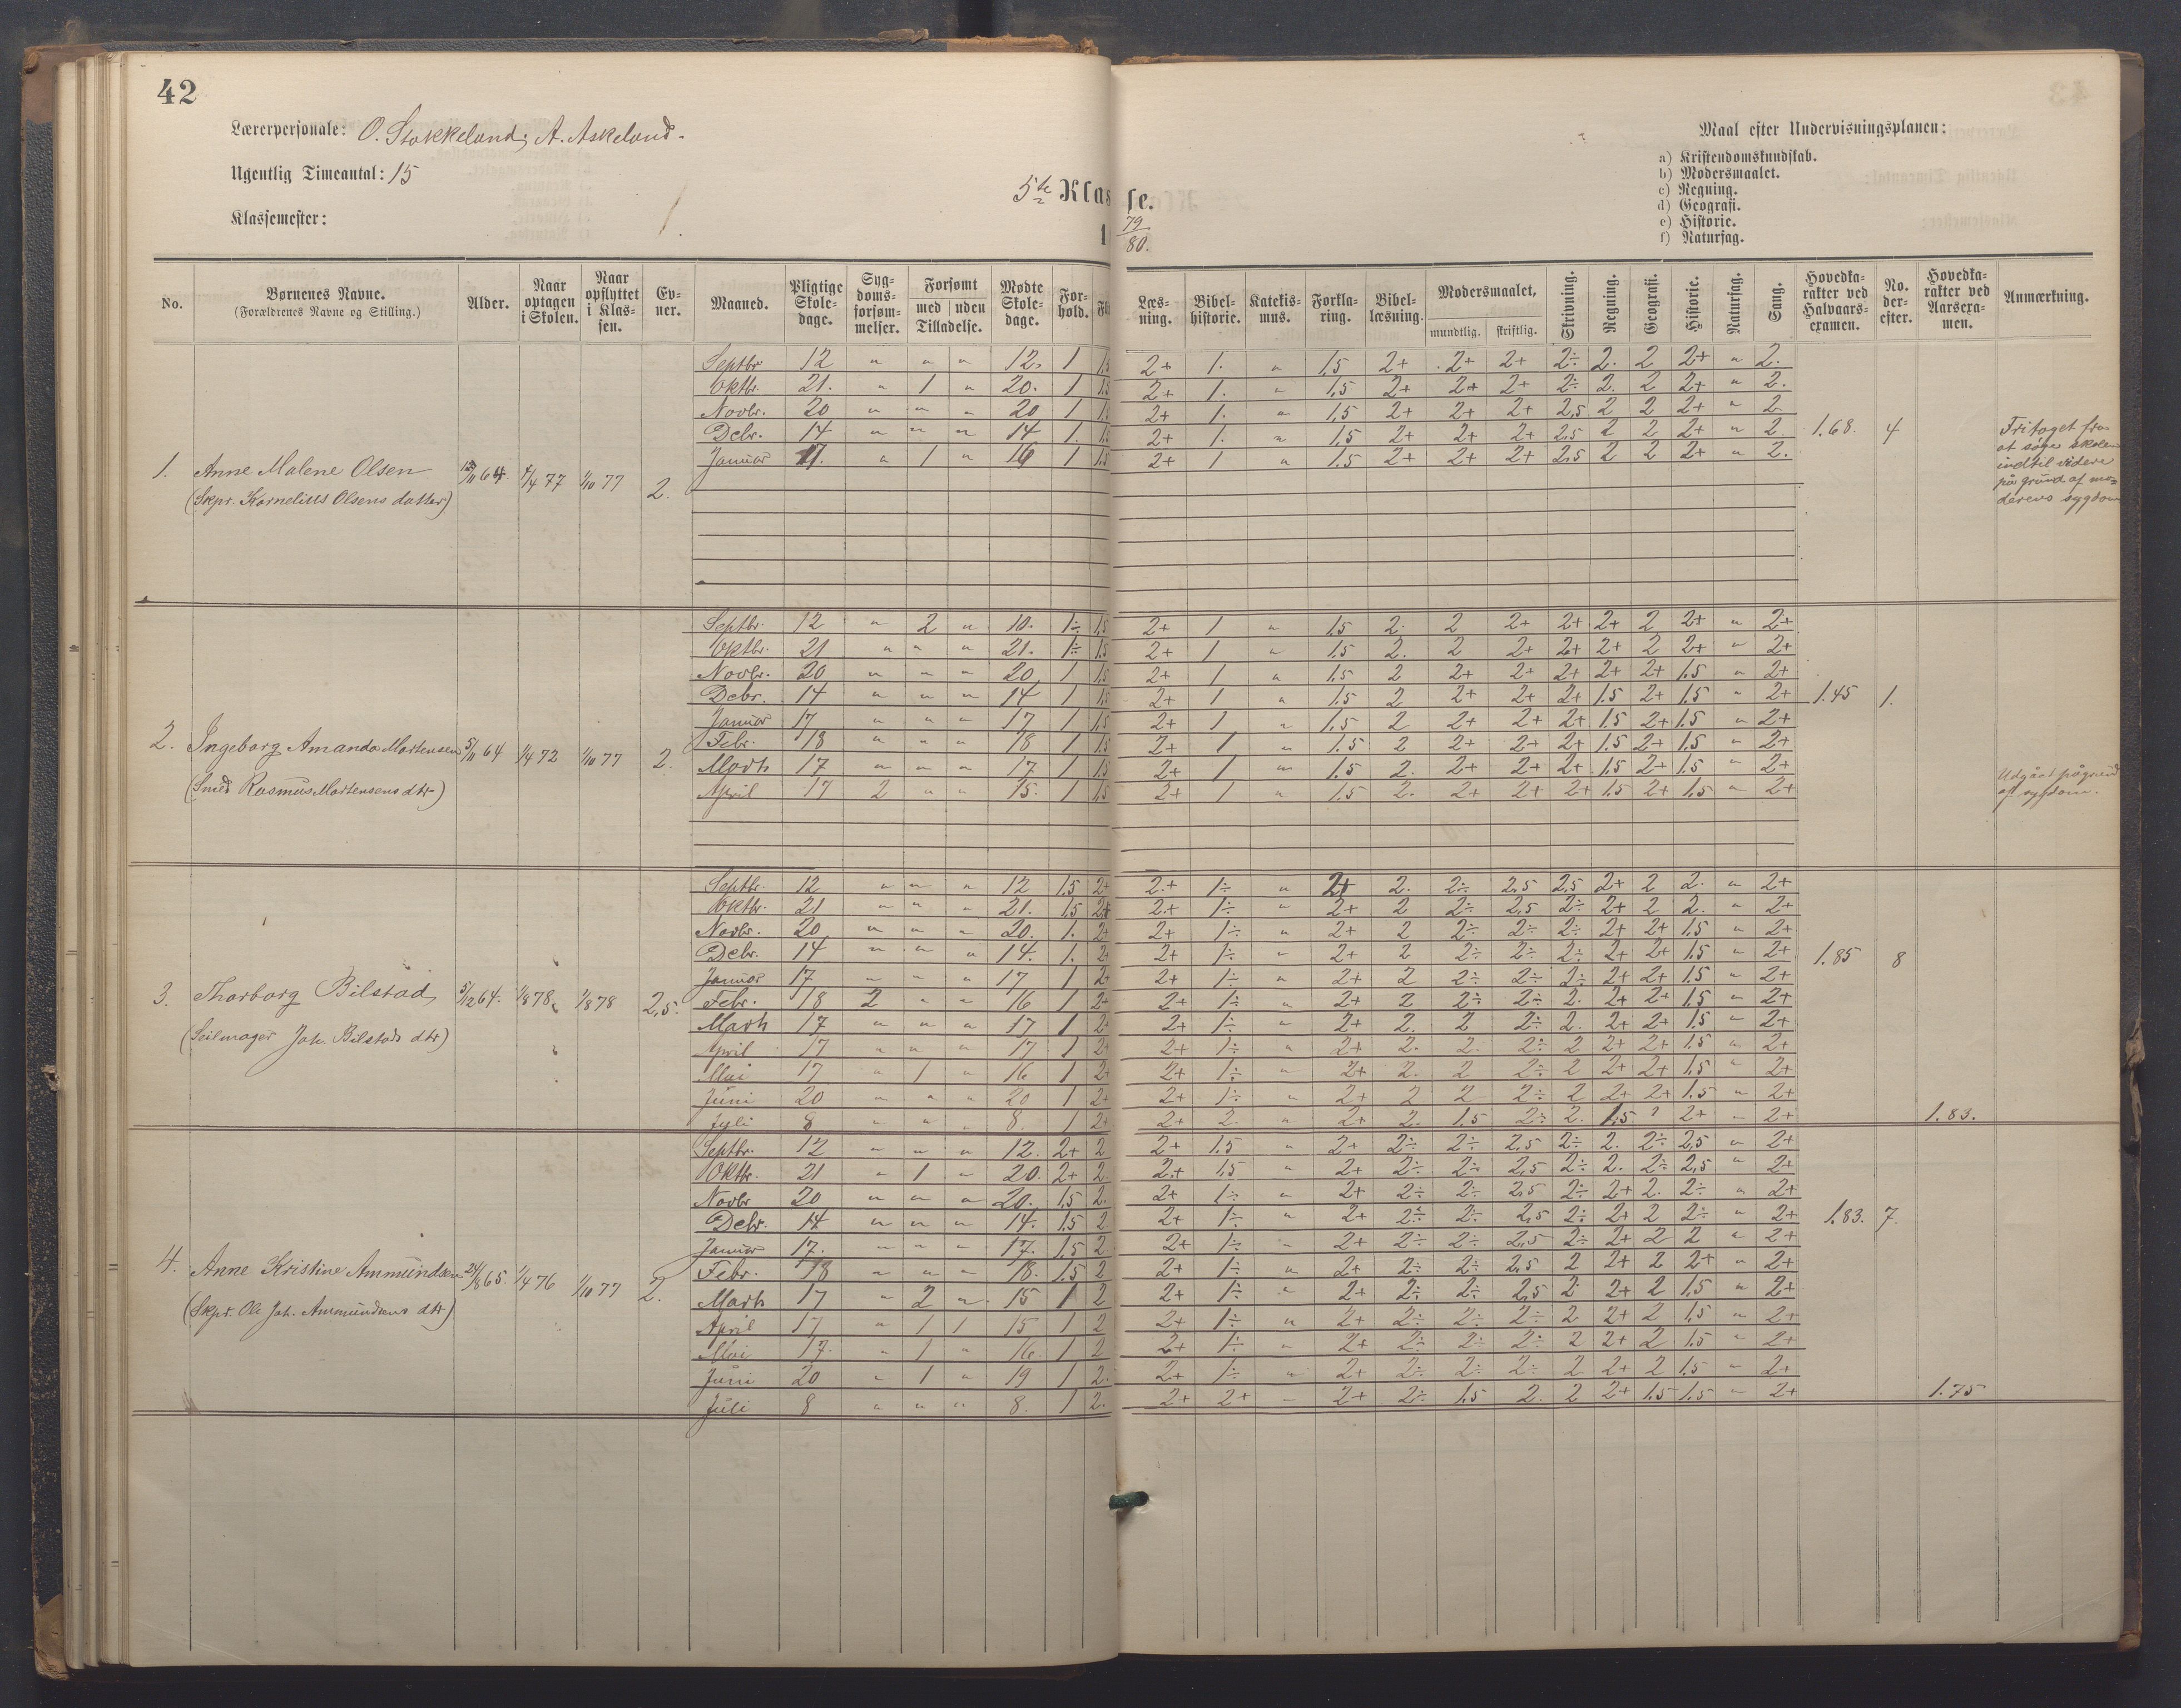 42
Lærerpersonale: O. Stokkeland; A. Askeland.
Ugentlig Timeantal: 15
Klassemester:
5te Klasse.
79/80.
Maal efter Undervisningsplanen:
a) Kristendomskundskab.
b) Modersmaalet.
c) Regning.
d) Geografi.
e) Historie.
f) Naturfag.
No. | Børnenes Navne. (Forældrenes Navne og Stilling.) | Alder. | Naar optagen i Skolen. | Naar opflyttet i Klassen. | Evner. | Maaned. | Pligtige Skoledage. | Sygdomsforsømmelser. | Forsømt med uden Tilladelse. | Mødte Skoledage. | Forhold. | Læsning. | Bibelhistorie. | Katekismus. | Forklaring. | Bibellæsning. | Modersmaalet, mundtlig. skriftlig. | Skrivning. | Regning. | Geografi. | Historie. | Naturfag. | Sang. | Hovedkarakter ved Halvaarsexamen. | No. derefter. | Hovedkarakter ved Aarsexamen. | Anmærkning.
1. Anne Malene Olsen
(Skpr. Kornelius Olsens datter)
1/10 77 2.
Septbr 12 " " " 12. 1 1,5 2+ 1. " 1,5 2+ 2+ 2+ 2÷ 2. 2 2+ " 2.
Oktb. 21. " 1 " 20. 1 1,5 2+ 1. " 1,5 2+ 2+ 2+ 2÷ 2. 2 2+ " 2.
Novbr. 20 " " " 20 1 1,5 2+ 1. " 1,5 2+ 2+ 2+ 2,5 2 2 2+ " 2
Debr. 14 " " " 14 1. 1,5 2+ 1. " 1,5 2+ 2+ 2+ 2,5 2 2 2+ " 2
Januar 17. " 1 " 16 1 1,5 2+ 1 " 1.5 2+ 2+ 2+ 2,5 2 2 2+ " 2.
1.68. 4
Fritaget fra
at søge skolen
indtil videre
på grund af mo=
derens sygdom
2. Ingeborg Amanda Mortensen 5/11 64 1/4 72 1/10 77 2.
(Smed Rasmus Mortensens dtr)
Septbr. 12 " 2 " 10. 1÷ 1,5 2+ 1 " 1,5 2. 2 2+ 2+ 2+ 2 2+ " 2+
Oktbr. 21 " " " 21. 1÷ 1,5 2+ 1 " 1,5 2. 2 2+ 2+ 2+ 2 2+ " 2+
Novbr. 20 " " " 20 1 1,5 2+ 1 " 1,5 2 2+ 2+ 2+ 2+ 2+ 1.5 " 2+
Debr. 14 " " " 14 1 1,5 2+ 1 " 1.5 2 2+ 2+ 2+ 1.5 2+ 1.5 " 2+
Januar 17 " " " 17 1 1,5 2+ 1 " 1,5 2 2+ 2+ 2+ 1.5 2+ 1.5 " 2+
Febr. 18 " " " 18 1 1,5 2+ 1 " 1.5 2 2+ 2+ 2+ 1.5 2+ 1.5 " 2+
Marts 17 " " " 17 1 1,5 2+ 1 " 1.5 2. 2+ 2+ 2+ 1.5 2+ 1.5 " 2+
April 17 2 " " 15. 1 1,5 2+ 1 " 1.5 2. 2+ 2+ 2+ 1.5 2+ 1.5 " 2+
1.45 1.
Udgået på grund
af sygdom.
3. Thorborg Bilstad 5/12 64. 1/8 78 1/8 78 2,5.
(Seilmager Joh. Bilstads dtr)
Septbr. 12 " " " 12 1.5 2+ 2.+ 1÷ " 2+ 2. 2÷ 2.5 2.5 2+ 2 2. " 2+
Oktbr. 21 " " " 21. 1.5 2+ 2.+ 1÷ " 2+ 2 2÷ 2.5 2÷ 2+ 2 2. " 2+
Novbr. 20 " " " 20. 1. 2+ 2+ 1÷ " 2+ 2 2÷ 2÷ 2÷ 2+ 2+ 1.5 " 2+
Debr. 14 " " " 14. 1. 2+ 2+ 1÷ " 2+ 2 2÷ 2÷ 2÷ 2+ 2+ 1.5 " 2+
Januar 17 " " " 17 1 2+ 2+ 1÷ " 2+ 2 2÷ 2÷ 2÷ 2+ 2+ 1.5 " 2+
Febr. 18 2 " " 16 1 2+ 2+ 1÷ " 2+ 2 2÷ 2÷ 2. 2+ 2+ 1.5 " 2+
Marts 17 " " " 17 1 2+ 2+ 1÷ " 2+ 2. 2 2÷ 2. 2+ 2+ 1.5 " 2+
April 17 " " " 17 1 2+ 2+ 1÷ " 2+ 2. 2. 2÷ 2 2+ 2+ 1.5 " 2+
Mai 17 " 1 " 16 1 2+ 2+ 1÷ " 2+ 2. 2 2÷ 2 2+ 2+ 1.5 " 2+
Juni 20 " " " 20 1 2+ 2+ 1÷ " 2+ 2 2 2÷ 2 2+ 2+ 1.5 " 2+
Jyli 8 " " " 8. 1 2+ 2+ 2. " 2+ 2. 1.5 2÷ 2. 1.5 2 2+ " 2+
1.85 8
1.83.
4. Anne Kristine Ammundsen 24/8 65. 1/4 76 1/10 77 2.
(Skpr. Ole Joh. Ammundsens dtr)
Septbr. 12 " " " 12. 2+ 2 2+ 1.5 " 2+ 2÷ 2÷ 2.5 2÷ 2. 2÷ 2,5 " 2+
Oktbr. 21 " 1 " 20. 2+ 2. 2.+ 1,5 " 2+ 2÷ 2÷ 2,5 2÷ 2. 2÷ 2,5 " 2+
Novbr 20 " " " 20. 1.5 2. 2+ 1÷ " 2+ 2÷ 2÷ 2.5 2÷ 2+ 2. 2÷ " 2+
Debr. 14 " " " 14. 1.5 2. 2+ 1÷ " 2+ 2÷ 2÷ 2,5 2÷ 2+ 2 2÷ " 2+
Januar 17. " " " 17. 1.5 2 2+ 1÷ " 2+ 2÷ 2÷ 2,5 2÷ 2+ 2 2 " 2+
Febr. 18 " " " 18. 1.5 2 2+ 1÷ " 2+ 2÷ 2÷ 2.5 2 2+ 2 2+ " 2+
Marts 17 " 2 " 15 1 2 2+ 1÷ " 2+ 2÷ 2÷ 2,5 2 2+ 2 1.5 " 2+
April 17 " 1 1 15 1 2 2+ 1÷ " 2+ 2÷ 2÷ 2÷ 2 2+ 2 1.5 " 2+
Mai 17. " 1 " 16. 1 2 2+ 1÷ " 2+ 2÷ 2÷ 2÷ 2 2+ 2 1.5 " 2+
Juni 20 " 1 " 19 1 2. 2+ 1÷ " 2+ 2÷ 2÷ 2÷ 2 2+ 2 1.5 " 2+
Juli 8 " " " 8. 1 2. 2+ 2+ " 2+ 2÷ 1.5 2. 2 2+ 1.5 1.5 " 2+
1.83. 7.
1.75